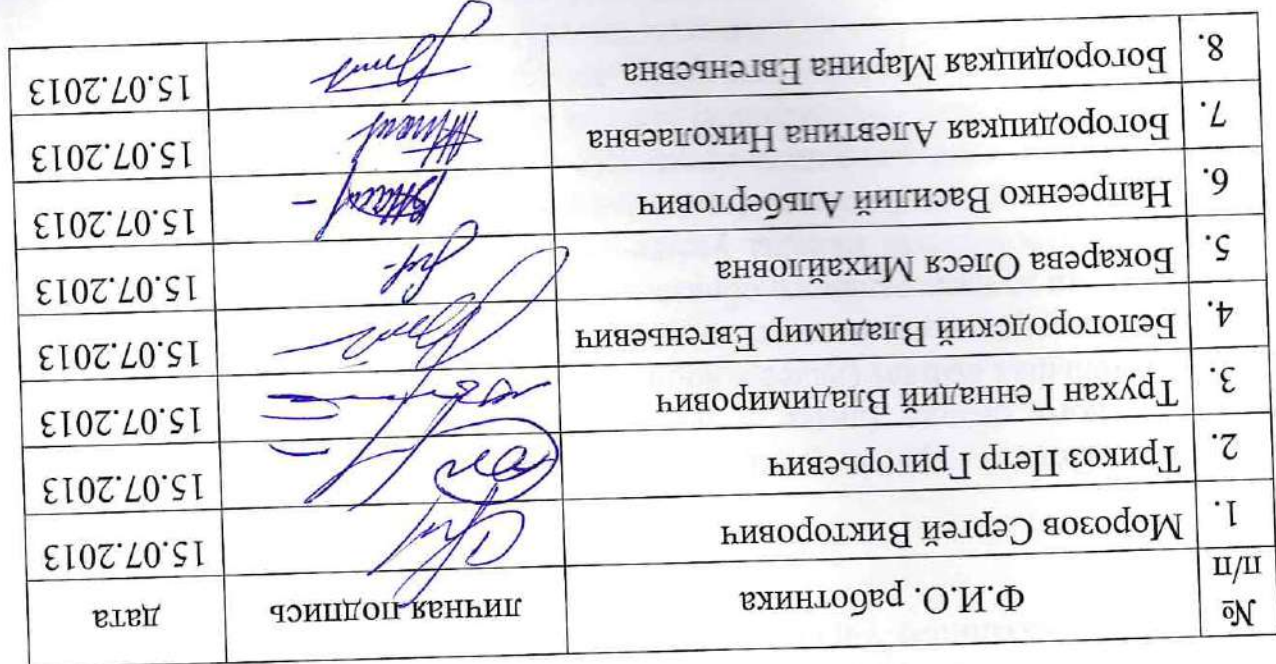 № п/п Ф.И.О. работника личная подпись дата
1. Морозов Сергей Викторович 15.07.2013
2. Трикоз Петр Григорьевич 15.07.2013
3. Трухан Геннадий Владимирович 15.07.2013
4. Белогородский Владимир Евгеньевич 15.07.2013
5. Бокарева Олеся Михайловна 15.07.2013
6. Напреенко Василий Альбертович 15.07.2013
7. Богородицкая Алевтина Николаевна 15.07.2013
8. Богородицкая Марина Евгеньевна 15.07.2013